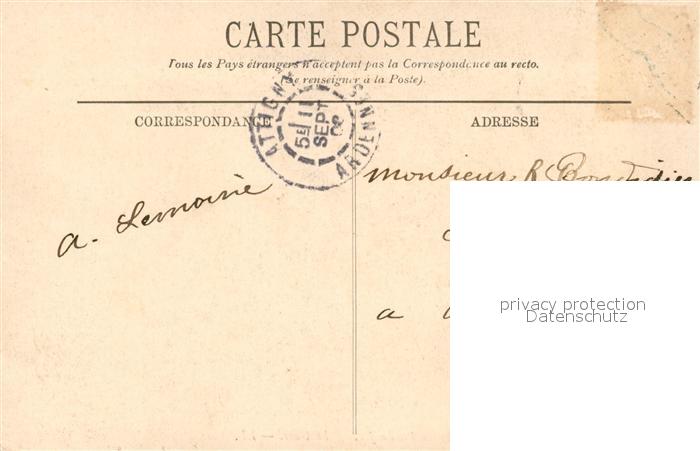 CARTE POSTALE
Tous les Pays étrangers n'acceptent pas la Correspondance au recto.
(Se renseigner à la Poste).
CORRESPONDANCE
ADRESSE
ATTIGNY
ARDENNES
11
SEPT
a. Lemoine
Monsieur
a
privacy protection
Datenschutz